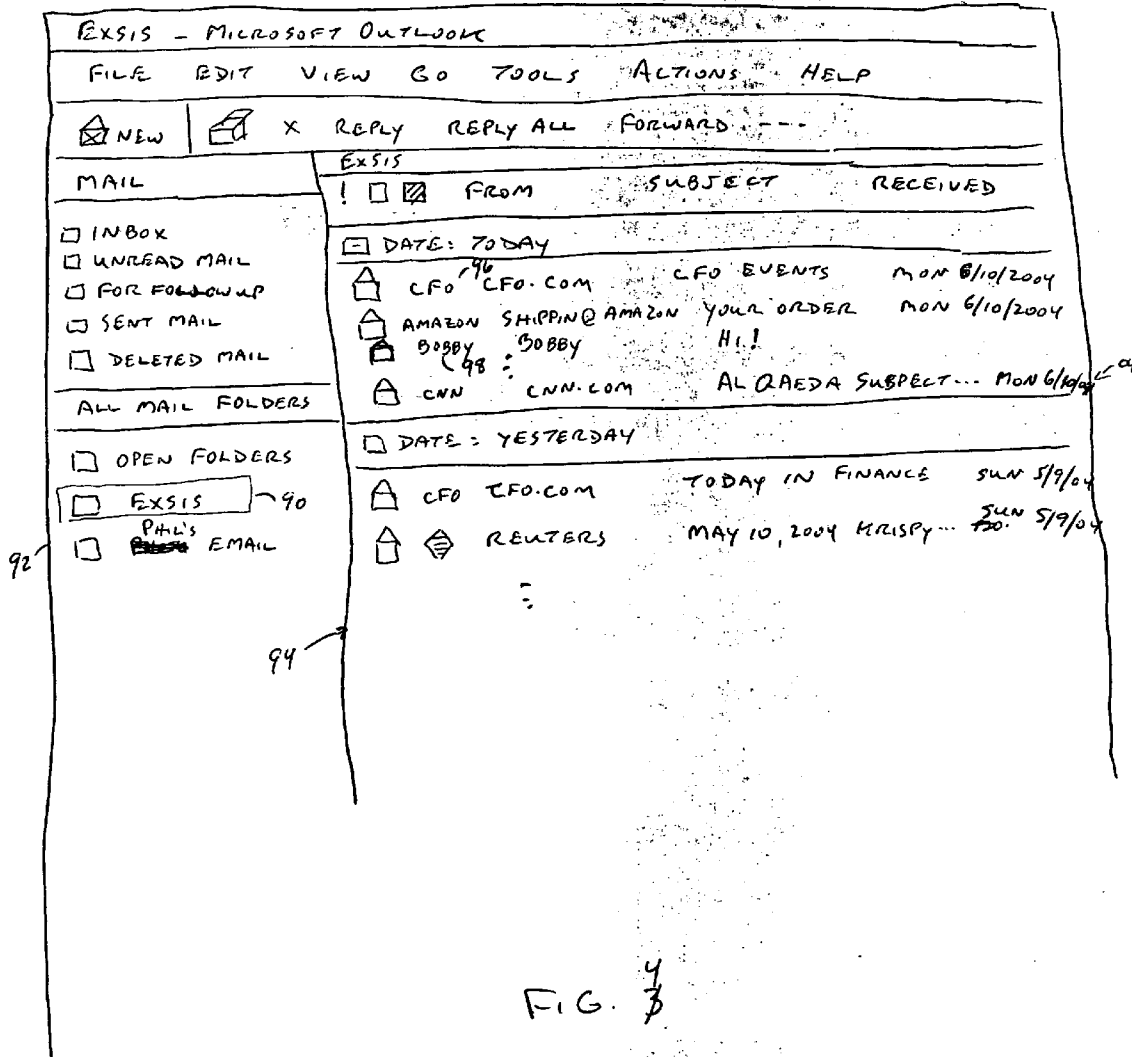 EXSIS - MICROSOFT OUTLOOK
FILE EDIT VIEW GO TOOLS ACTIONS HELP
NEW X REPLY REPLY ALL FORWARD ---
MAIL
INBOX
UNREAD MAIL
FOR FOLLOWUP
SENT MAIL
DELETED MAIL
ALL MAIL FOLDERS
OPEN FOLDERS
EXSIS 90
PHIL'S
EMAIL
92
EXSIS
! FROM SUBJECT RECEIVED
DATE: TODAY
96
CFO CFO.COM CFO EVENTS MON 6/10/2004
AMAZON SHIPPIN@AMAZON YOUR ORDER MON 6/10/2004
BOBBY BOBBY HI!
98
CNN CNN.COM AL QAEDA SUSPECT... MON
DATE: YESTERDAY
CFO CFO.COM TODAY IN FINANCE SUN 5/9/04
REUTERS MAY 10, 2004 KRISPY... SUN 5/9/04
94
FIG. 4